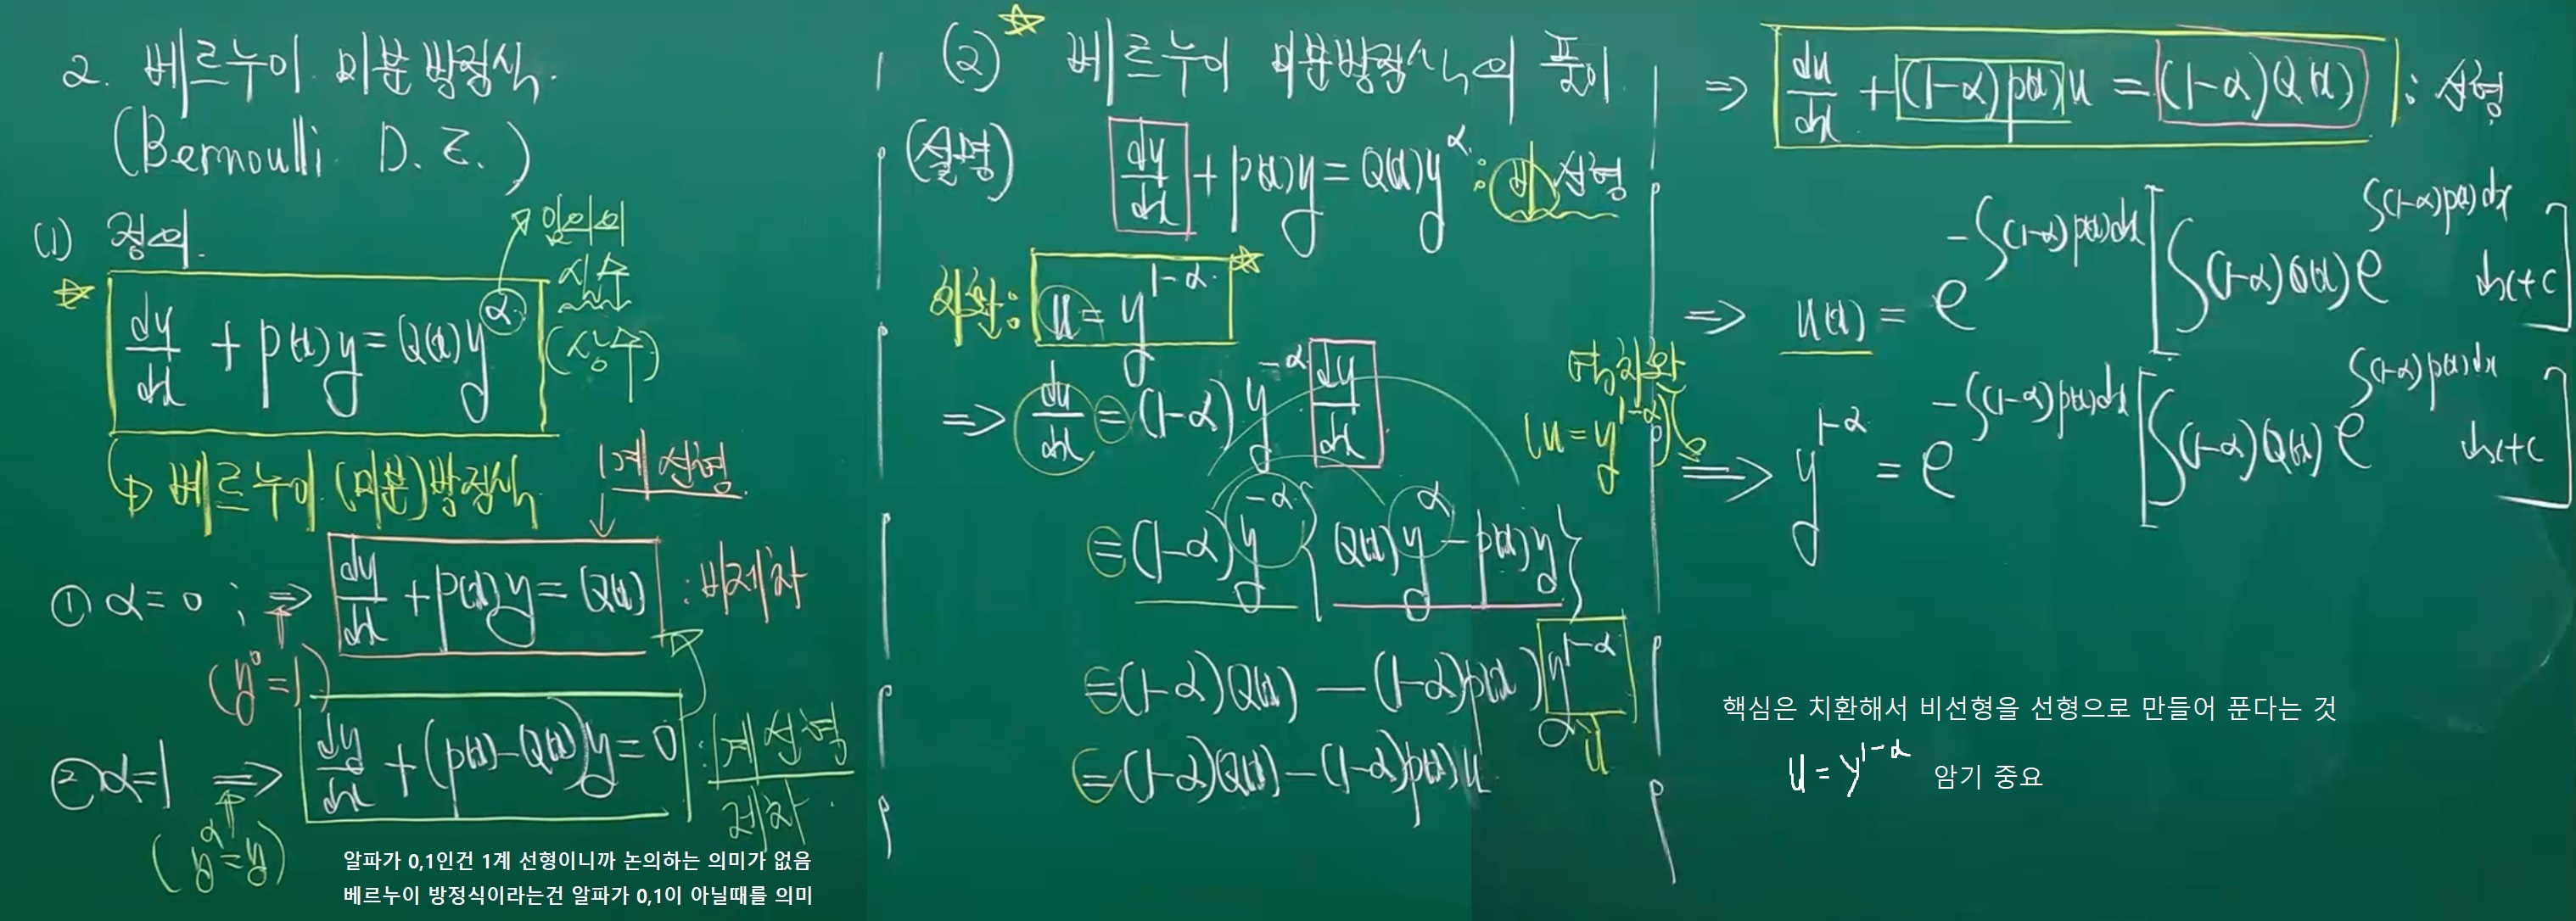 2. 베르누이 미분방정식.
(Bernoulli D. E.)
(1) 정의.
☆ dy/dx + p(x)y = Q(x)y^α → 임의의 실수 (상수)
↳ 베르누이 (미분)방정식
1계 선형
① α = 0 ; ⇒ dy/dx + p(x)y = Q(x) : 비제차
(y^0 = 1)
② α = 1 ⇒ dy/dx + (p(x) - Q(x))y = 0 : 1계 선형 제차.
(y^α = y)
알파가 0,1인건 1계 선형이니까 논의하는 의미가 없음
베르누이 방정식이라는건 알파가 0,1이 아닐때를 의미
(2) ☆ 베르누이 미분방정식의 풀이
(설명) dy/dx + p(x)y = Q(x)y^α : 비선형
치환: u = y^(1-α) ☆
⇒ du/dx = (1-α) y^(-α) · dy/dx
= (1-α) y^(-α) { Q(x)y^α - p(x)y }
= (1-α)Q(x) - (1-α)p(x) y^(1-α)
u
= (1-α)Q(x) - (1-α)p(x)u
⇒ du/dx + (1-α)p(x)u = (1-α)Q(x) : 선형
⇒ u(x) = e^(-∫(1-α)p(x)dx) [ ∫(1-α)Q(x) e^(∫(1-α)p(x)dx) dx + c ]
(u = y^(1-α))
⇒ y^(1-α) = e^(-∫(1-α)p(x)dx) [ ∫(1-α)Q(x) e^(∫(1-α)p(x)dx) dx + c ]
핵심은 치환해서 비선형을 선형으로 만들어 푼다는 것
u = y^(1-α) 암기 중요